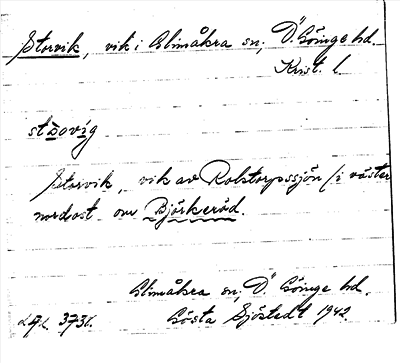 Storvik, vik i Glimåkra sn, Ö. Göinge hd.
Krist. l.
Storvik, vik av Rolstorpssjön /i väster
nordost om Björkeröd.
Glimåkra sn, Ö Göinge hd.
Gösta Sjöstedt 1942